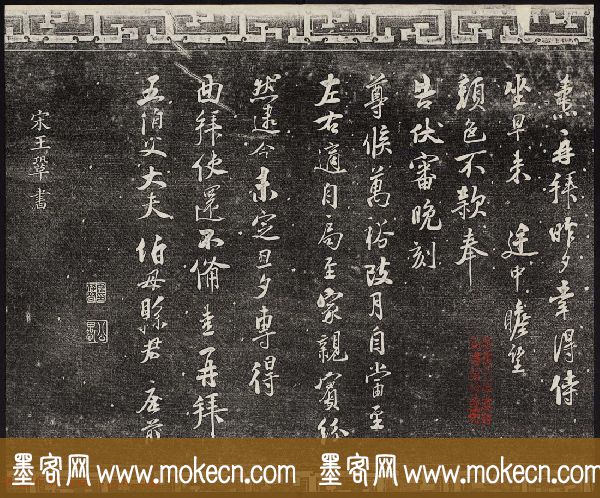 熏再拜昨夕幸得侍
坐早来 廷中瞻望
颜色不款奉
告伏審晚刻
尊候萬裕陂月自當至
左右適自局至家親賓紛
然遽今未定旦夕專得
曲拜使還不備熏再拜
五伯父大夫 伯母縣君 座前
宋王鞏書
墨客网 www.mokecn.com 墨客网 www.mokecn.com